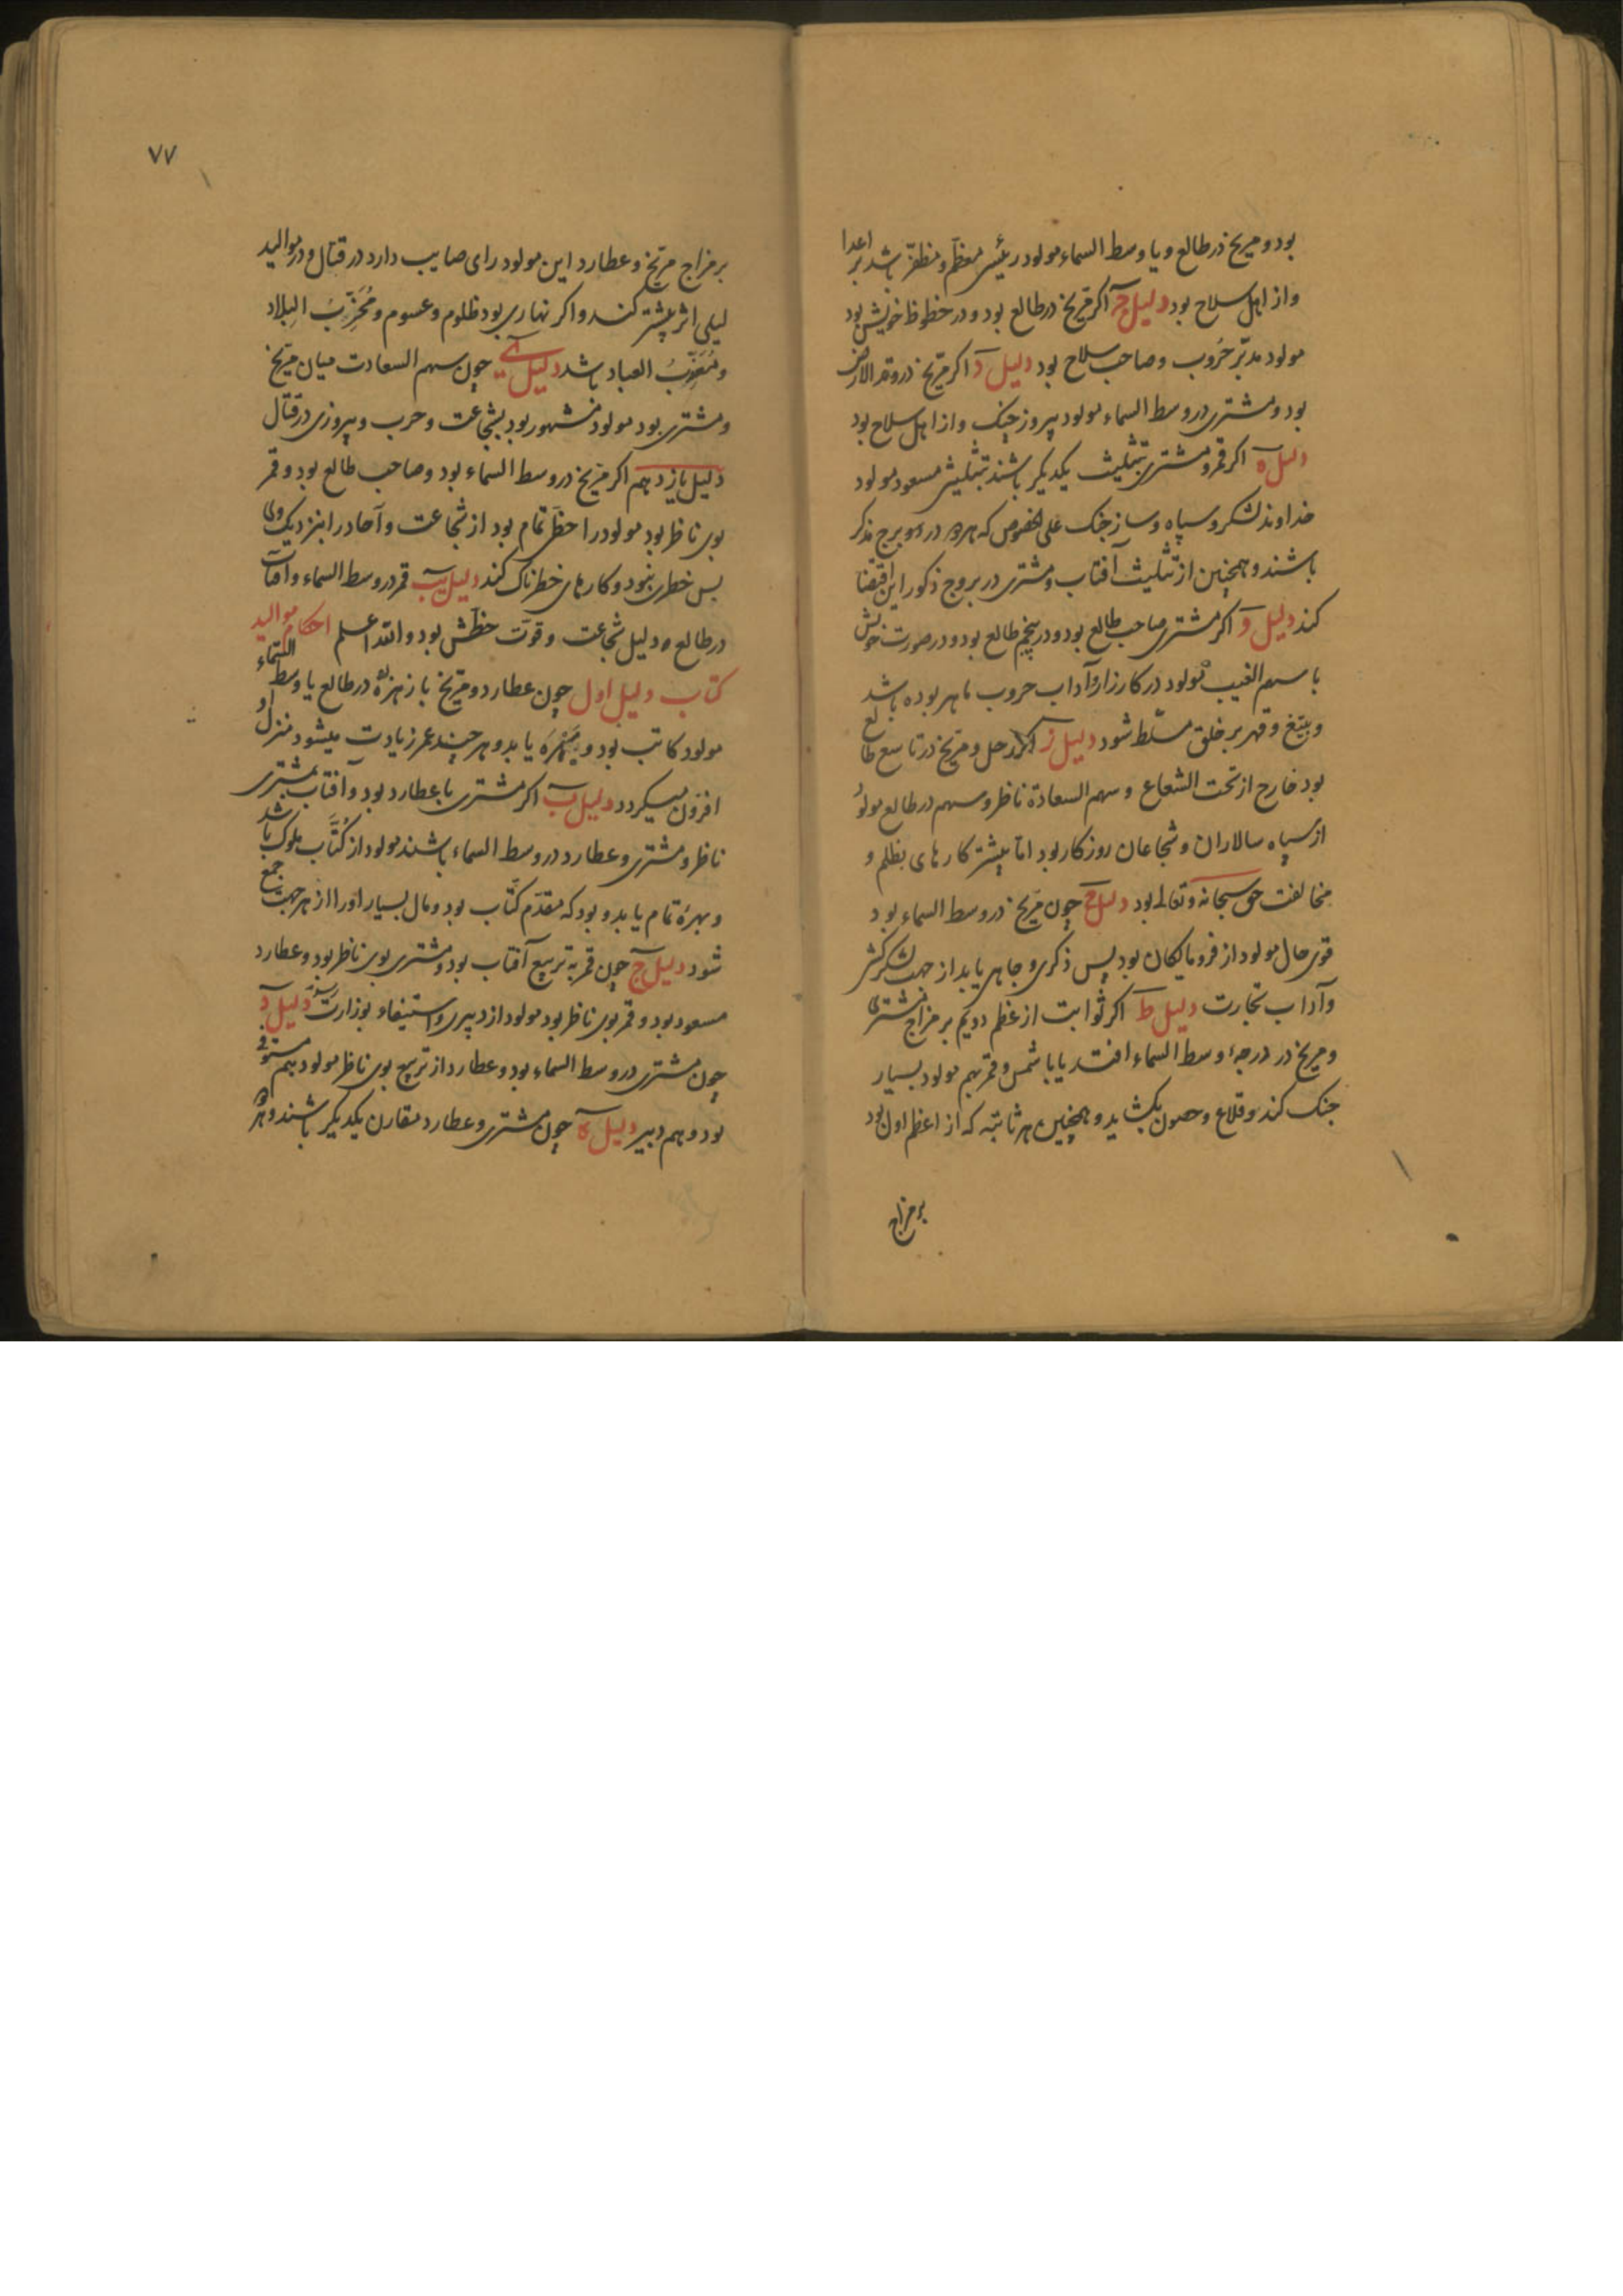 بود و مریخ در طالع و یا وسط السماء مولود رئیس معظم و مظفر باشد بر اعدا
و از اهل سلاح بود دلیل ج اکر مریخ در طالع بود و در حظوظ خویش بود
مولود مدبّر حُروب و صاحب سلاح بود دلیل د اکر مریخ در وتد الارض
بود و مشتری در وسط السماء مولود پیروز جنک و از اهل سلاح بود
دلیل ه اکر قمر و مشتری بتثلیث یکدیکر باشند تثلیث مسعود مولود
خداوند لشکر و سپاه و ساز جنک علی الخصوص که هر دو در دو برج مذکر
باشند و همچنین از تثلیث آفتاب و مشتری در بروج ذکور این اقتضا
کند دلیل و اکر مشتری صاحب طالع بود و در پنجم طالع بود و در صورت خویش
با سهم الغیب مولود در کارزار و آداب حروب ماهر بوده باشد
و بتیغ و قهر بر خلق مسلّط شود دلیل ز اکر زحل و مریخ در تاسع طالع
بود خارج از تحت الشعاع و سهم السعادة ناظر و سهم در طالع مولود
از سپاه سالاران و شجاعان روزکار بود امّا بیشتر کارهای بظلم و
مخالفت حق سبحانه و تعالی بود دلیل ح چون مریخ در وسط السماء بود
قوی حال مولود از فرومایکان بود پس ذکری و جاهی یابد از جهت لشکر کشی
و آداب تجارت دلیل ط اکر ثوابت از عظم دویم بر مزاج مشتری
و مریخ در درجهٔ وسط السماء افتد یا با شمس و قمر بهم مولود بسیار
جنک کند و قلاع و حصون بکشاید و همچنین هر ثابته که از اعظم اول بود
بر مزاج
۷۷
بر مزاج مریخ و عطارد این مولود رای صایب دارد در قتال و در موالید
لیلی اثر بیشتر کند و اکر نهاری بود ظلوم و عسوم و مُخَرِّبُ البلاد
و مُعَذِّبُ العباد باشد دلیل ی چون سهم السعادت میان مریخ
و مشتری بود مولود مشهور بود بشجاعت و حرب و پیروزی در قتال
دلیل یازدهم اکر مریخ در وسط السماء بود و صاحب طالع بود و قمر
بوی ناظر بود مولود را حظّ تمام بود از شجاعت و آحاد را بنزدیک وی
بس خطری نبود و کارهای خطرناک کند دلیل یب قمر در وسط السماء و آفتاب
در طالع دلیل شجاعت و قوّت حظّش بود والله اعلم احکام موالید
کتاب دلیل اول چون عطارد و مریخ با زهره در طالع یا وسط السماء
مولود کاتب بود و بهره یابد و هر چند عمر زیادت میشود منزل او
افزون میکردد دلیل ب اکر مشتری با عطارد بود و آفتاب بمشتری
ناظر و مشتری و عطارد در وسط السماء باشند مولود از کُتّاب ملوک باشد
و بهرهٔ تمام یابد و بود که مقدّم کتّاب بود و مال بسیار او را از هر جهت جمع
شود دلیل ج چون قمر به تربیع آفتاب بود و مشتری بوی ناظر بود و عطارد
مسعود بود و قمر بوی ناظر بود مولود از دبیری و استیفاء بوزارت رسد دلیل د
چون مشتری در وسط السماء بود و عطارد از تربیع بوی ناظر مولود هم مستوفی
بود و هم دبیر دلیل ه چون مشتری و عطارد مقارن یکدیکر باشند و هر